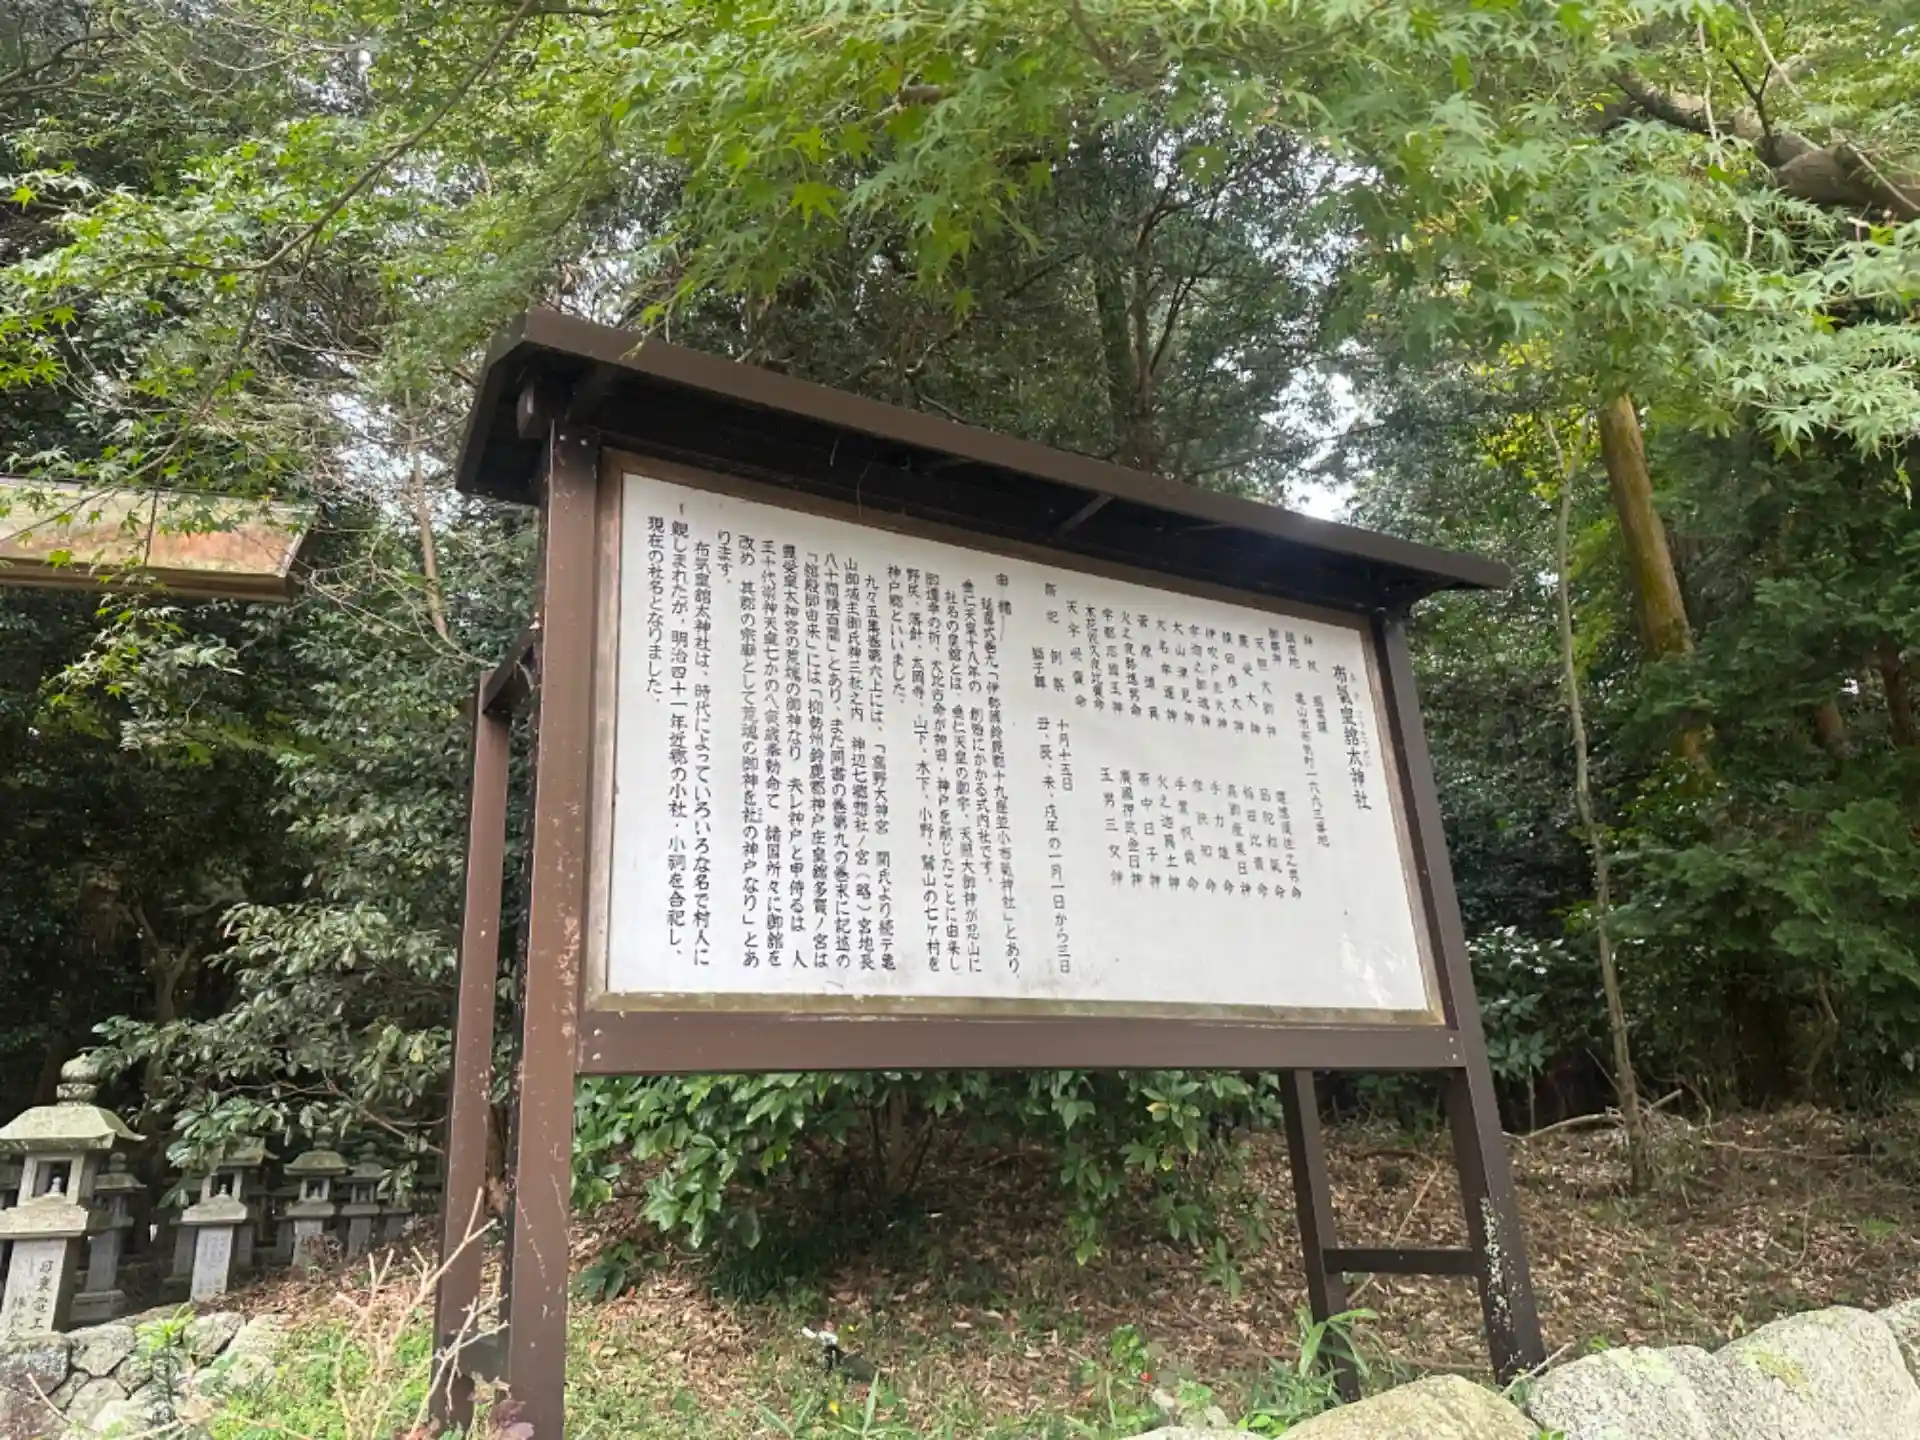 布氣皇舘太神社
神社 三重県
鎮座地 亀山市布気町一六六三番地
御祭神
天照大御神
豊受大神
猿田彦大神
伊吹戸主大神
大山津見神
大名牟遅神
菅原道真
火之夜藝速男命
宇都志国玉神
木花佐久夜比賣命
天宇受賣命
手力雄命
手置帆負命
天中日子神
玉男三女神
祭祀 例祭 十月十五日
獅子舞 丑、辰、未、戌年の一月一日から三日
由緒
延喜式巻九「伊勢國鈴鹿郡十九座並小布氣神社」とあり、
垂仁天皇十八年の 創始にかかる式内社です。
社名の皇舘とは、垂仁天皇の御宇、天照大御神が忍山に
御遷幸の折、大比古命が神田・神戸を献じたことに由来し
野尻、落針、太岡寺、山下、木下、小野、鷲山の七ヶ村を
神戸郷といいました。
九々五集巻第六上には、「高野大神宮 関氏より続テ亀
山御城主御氏神三社之内 神辺七郷惣社ノ宮(略)宮地長
八十間横百間」とあり、また同書の巻第九の巻末に記述の
「舘殿御由来」には「抑勢州鈴鹿郡神戸庄皇舘多賀ノ宮は
豊受皇太神宮の荒魂の御神なり 夫レ神戸と申侍るは 人
王十代崇神天皇七かのへ寅歳奉勅命て 諸国所々に御舘を
改め 其郡の宗廟として荒魂の御神を社の神戸なり」とあ
ります。
布気皇舘太神社は、時代によっていろいろな名で村人に
親しまれたが、明治四十一年近郷の小社・小祠を合祀し、
現在の社名となりました。
日東電工
株式会